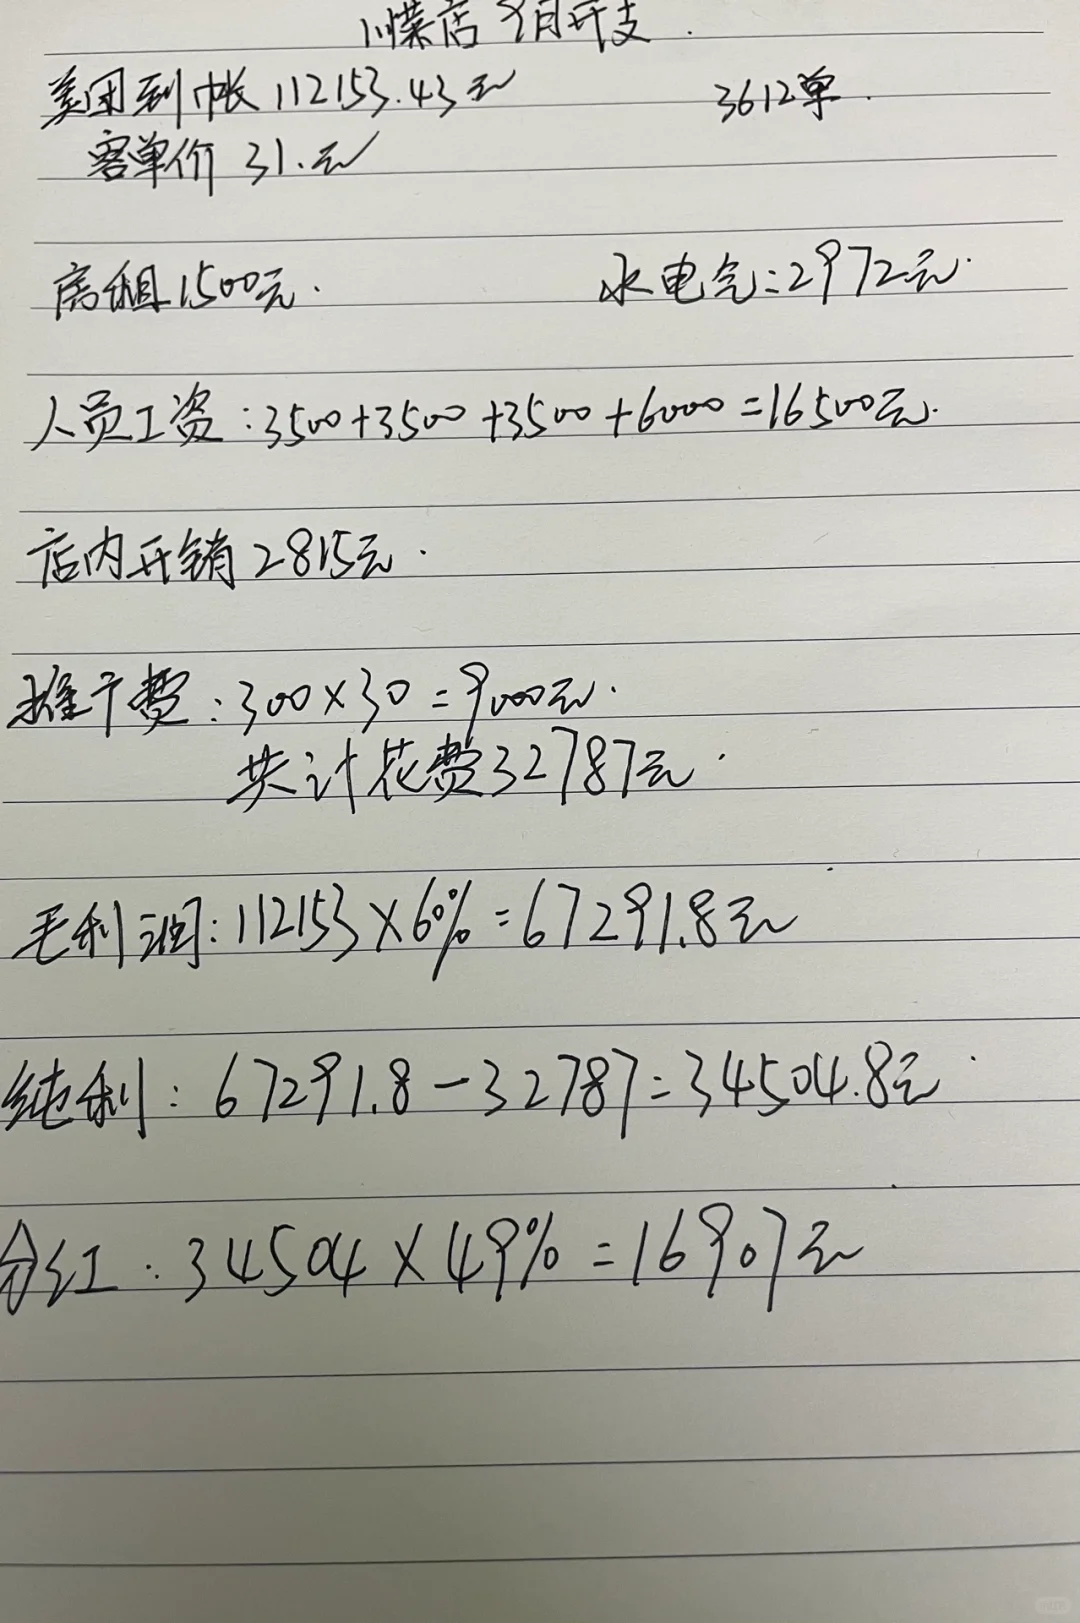 川菜店 9月开支.
美团到帐112153.43元 3612单.
客单价 31.元
房租1500元. 水电气:2972元.
人员工资:3500+3500+3500+6000=16500元.
店内开销2815元.
推广费:300×30=9000元.
共计花费32787元.
毛利润:112153×60%=67291.8元
纯利:67291.8-32787=34504.8元
分红:34504×49%=16907元